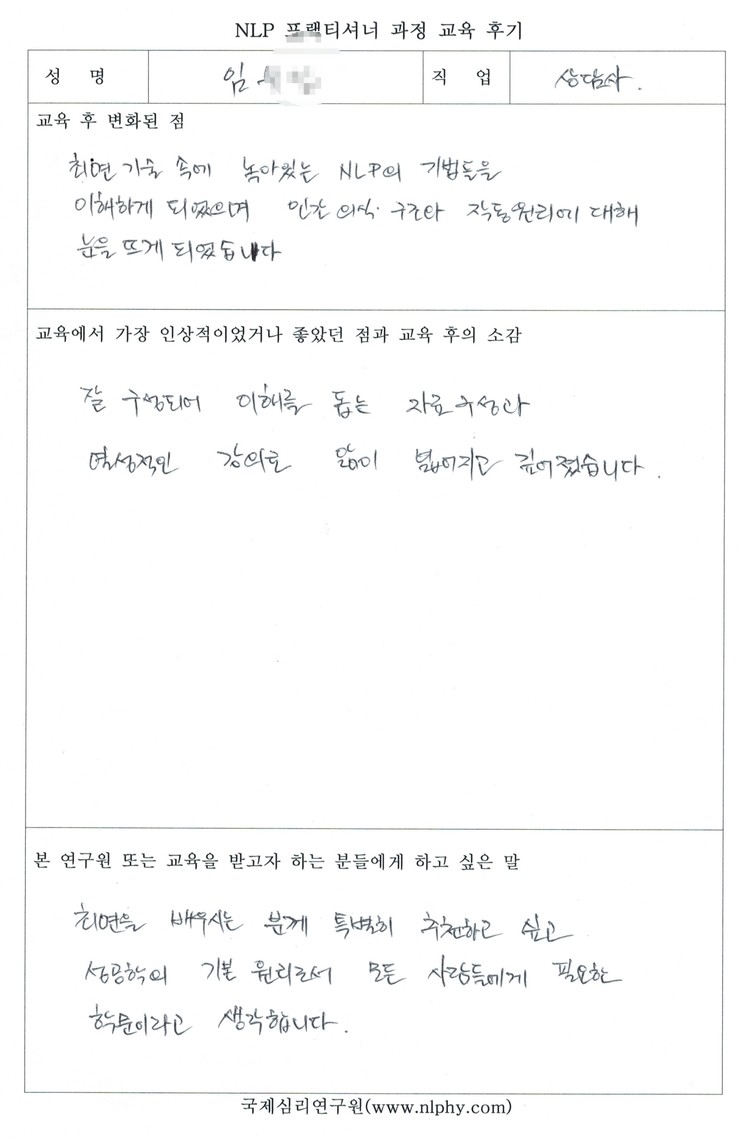 NLP 프랙티셔너 과정 교육 후기
성 명 임 직 업 상담사.
교육 후 변화된 점
최면 기술 속에 녹아있는 NLP의 기법들을
이해하게 되었으며 인간 의식 구조와 작동원리에 대해
눈을 뜨게 되었습니다
교육에서 가장 인상적이었거나 좋았던 점과 교육 후의 소감
잘 구성되어 이해를 돕는 자료구성과
열성적인 강의로 앎이 넓어지고 깊어졌습니다.
본 연구원 또는 교육을 받고자 하는 분들에게 하고 싶은 말
최면을 배우시는 분께 특별히 추천하고 싶고
성공학의 기본 원리로서 모든 사람들에게 필요한
학문이라고 생각합니다.
국제심리연구원(www.nlphy.com)